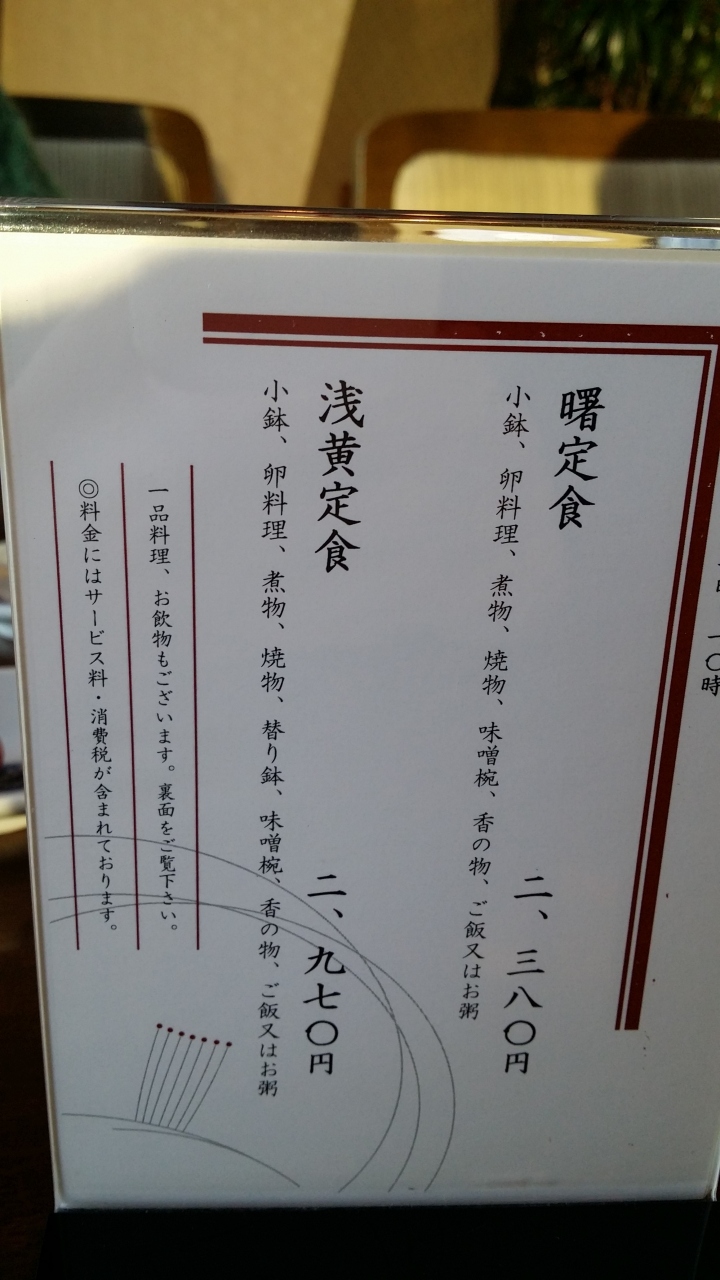 一〇時
曙定食
二、三八〇円
小鉢、卵料理、煮物、焼物、味噌椀、香の物、ご飯又はお粥
浅黄定食
二、九七〇円
小鉢、卵料理、煮物、焼物、替り鉢、味噌椀、香の物、ご飯又はお粥
一品料理、お飲物もございます。裏面をご覧下さい。
◎料金にはサービス料・消費税が含まれております。